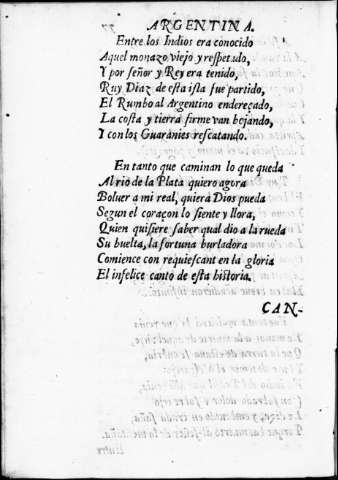 ARGENTINA.
Entre los Indios era conocido
Aquel monazo viejo y respetado,
Y por señor y Rey era tenido,
Ruy Diaz de esta isla fue partido,
El Rumbo al Argentino endereçado,
La costa y tierra firme van bojando,
Y con los Guaranies rescatando.
En tanto que caminan lo que queda
Al rio de la Plata quiero agora
Boluer a mi real, quiera Dios pueda
Segun el coraçon lo siente y llora,
Quien quisiere saber qual dio a la rueda
Su buelta, la fortuna burladora
Comience con requiescant en la gloria
El infelice canto de esta historia.
CAN-